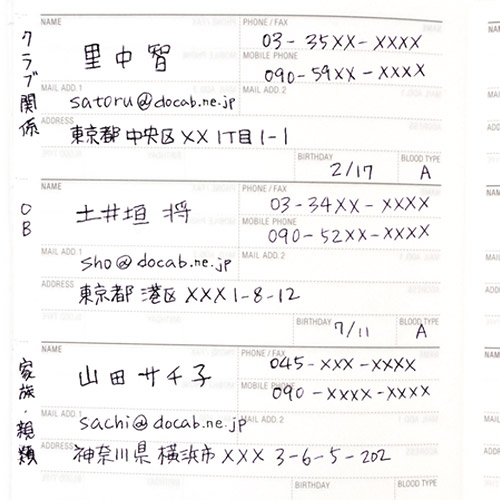 クラブ関係
NAME
里中智
PHONE / FAX
03-35XX-XXXX
MOBILE PHONE
090-59XX-XXXX
MAIL ADD.1
MAIL ADD.2
satoru@docab.ne.jp
ADDRESS
東京都中央区XX 1丁目1-1
BIRTHDAY
2/17
BLOOD TYPE
A
OB
NAME
土井垣 将
PHONE / FAX
03-34XX-XXXX
MOBILE PHONE
090-52XX-XXXX
MAIL ADD.1
MAIL ADD.2
sho@docab.ne.jp
ADDRESS
東京都 港区 XXX1-8-12
BIRTHDAY
7/11
BLOOD TYPE
A
家族・親類
NAME
山田サチ子
PHONE / FAX
045-XXX-XXXX
MOBILE PHONE
090-XXXX-XXXX
MAIL ADD.1
MAIL ADD.2
sachi@docab.ne.jp
ADDRESS
神奈川県横浜市XXX 3-6-5-202
BIRTHDAY
BLOOD TYPE